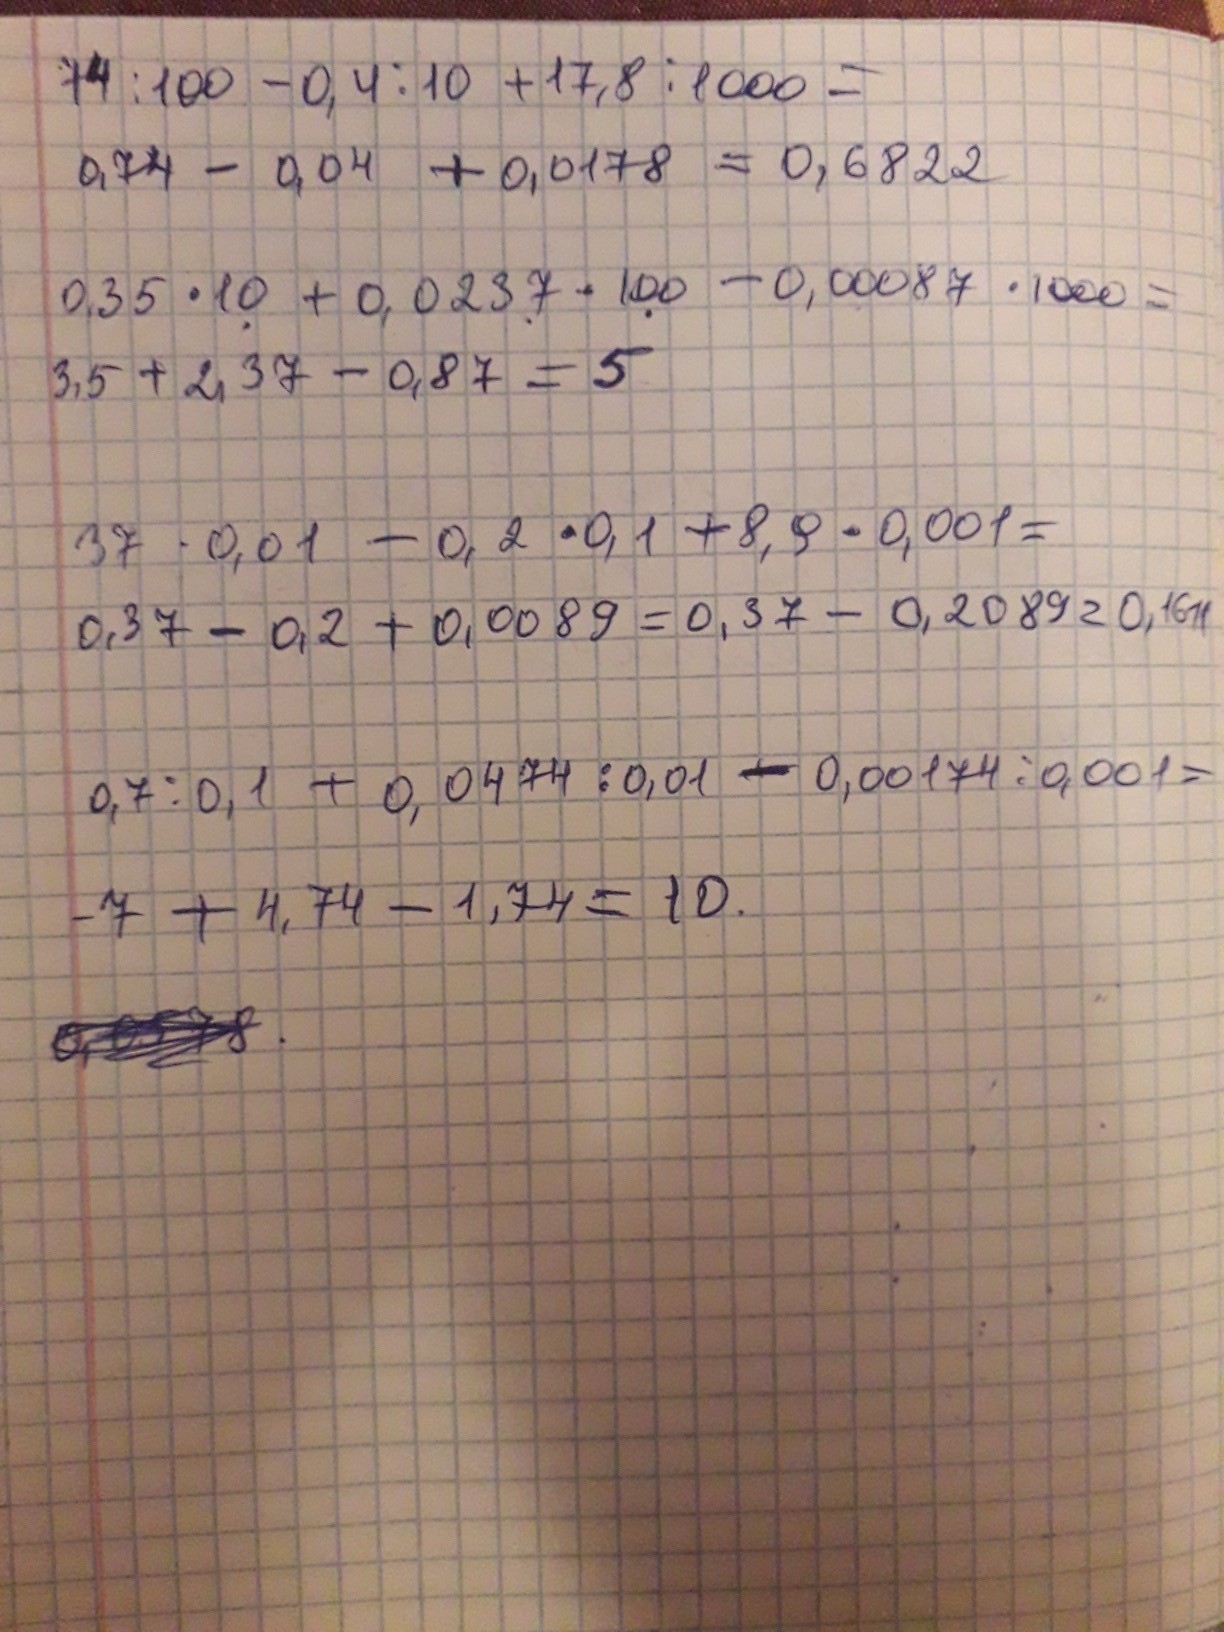 74:100 - 0,4:10 + 17,8:1000 =
0,74 - 0,04 + 0,0178 = 0,6822
0,35 · 10 + 0,0237 · 100 - 0,00087 · 1000 =
3,5 + 2,37 - 0,87 = 5
37 · 0,01 - 0,2 · 0,1 + 8,9 · 0,001 =
0,37 - 0,2 + 0,0089 = 0,37 - 0,2089 = 0,1611
0,7:0,1 + 0,0474:0,01 - 0,00174:0,001 =
-7 + 4,74 - 1,74 = 10.